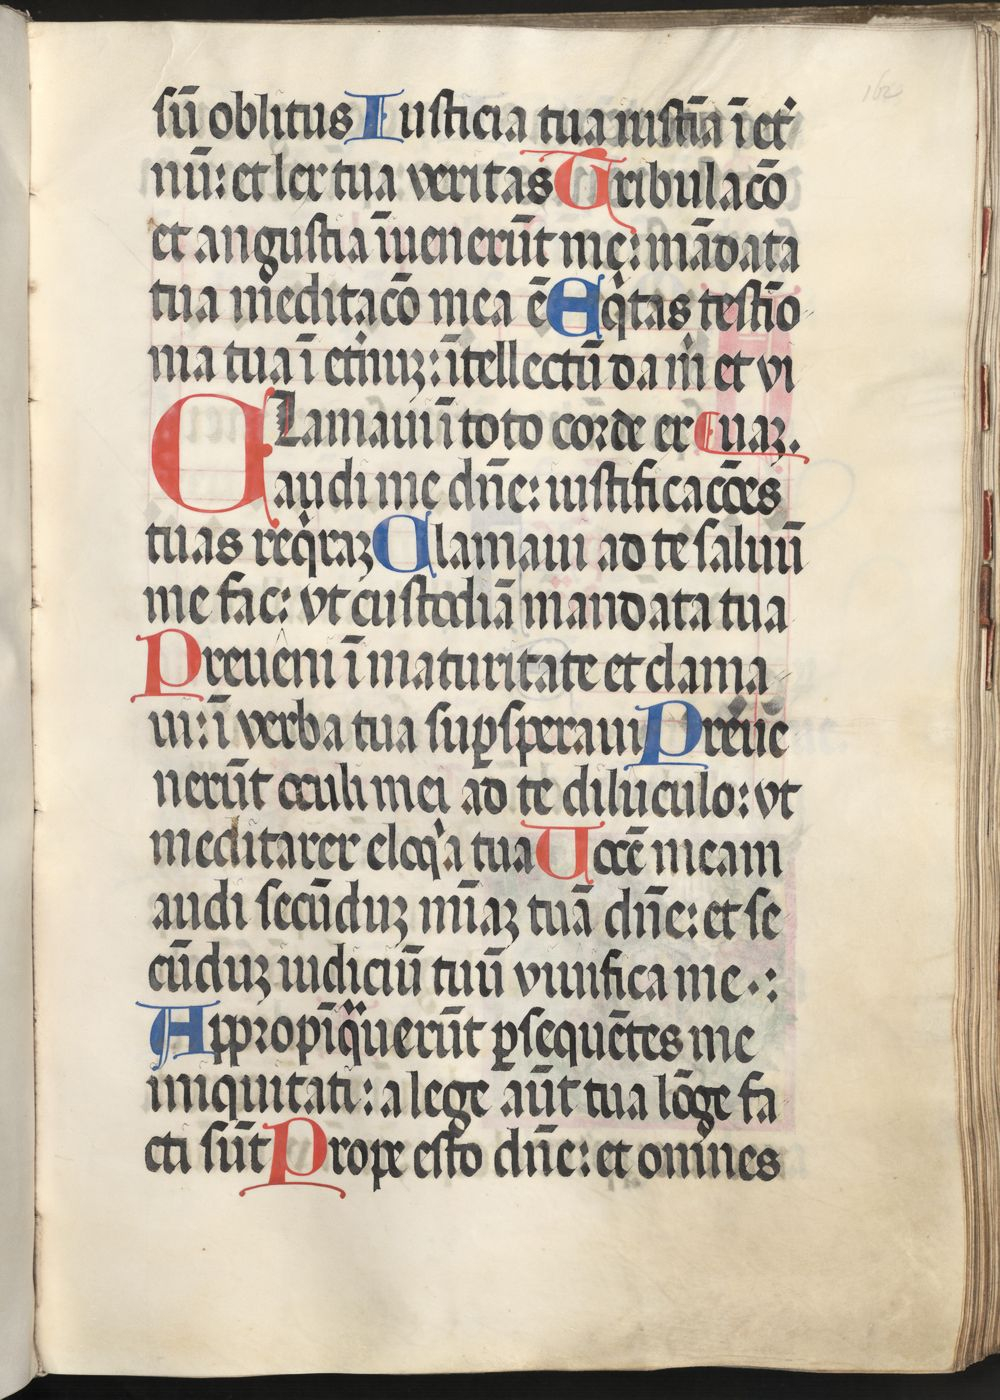 162
sū oblitus Iusticia tua iusticīa ī et̉
nū: et lex tua veritas Tribulacō
et angustia īuenerūt me: mādata
tua meditacō mea ē Eq̍tas testīo
nia tua ī et̉nuꝫ: ītellectū da m̍ et vi
CLamaui ī toto corde ex Euaꝫ.
audi me dn̄e: iustificacōēs
tuas req̍raꝫ Clamaui ad te saluū
me fac: vt custodiā mandata tua
Preueni ī maturitate et clama
ui: ī verba tua sup̱speraui Preue
nerūt oculi mei ad te diluculo: vt
meditarer eloq̍a tua Uocē meam
audi secūduꝫ mīaꝫ tuā dn̄e: et se
cūduꝫ iudiciū tuū viuifica me.:
Appropīq̈uerūt ꝑsequētes me
iniquitati: a lege aūt tua lōge fa
cti sūt Prope esto dn̄e: et omnes